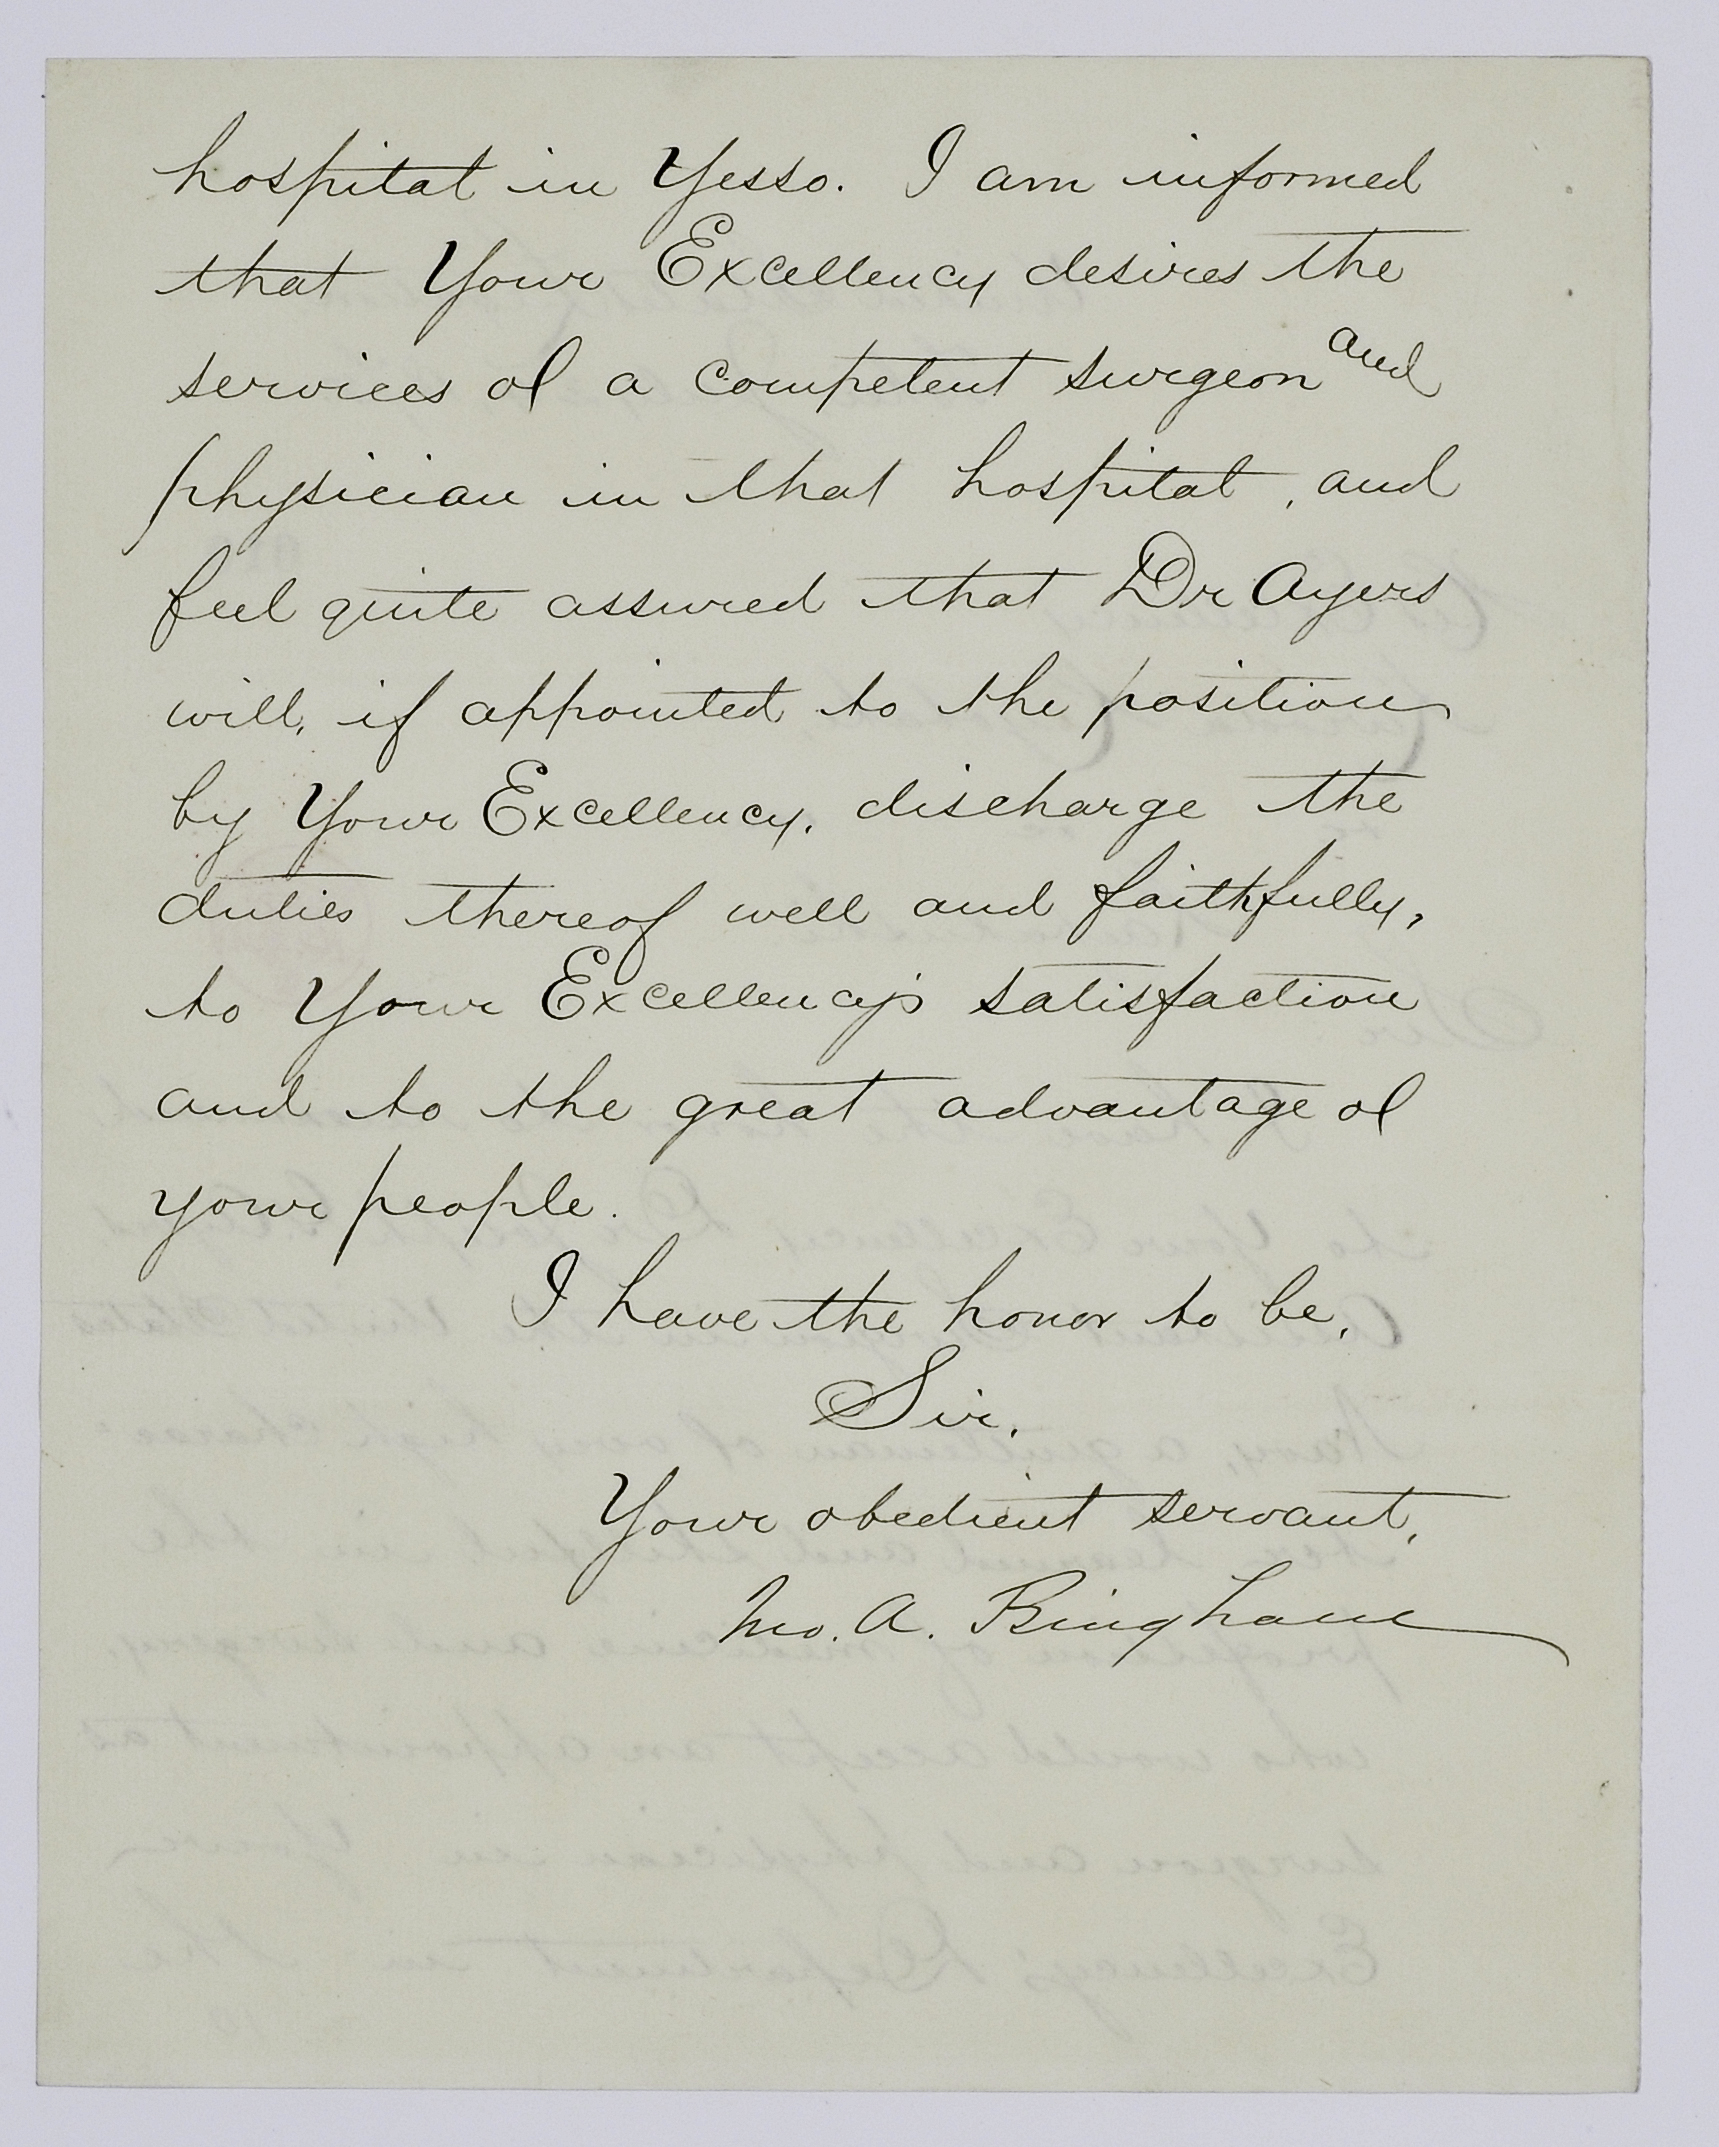 hospital in Yesso. I am informed
that Your Excellency desires the
services of a competent surgeon and
physician in that hospital, and
feel quite assured that Dr Ayers
will, if appointed to the position
by Your Excellency, discharge the
duties thereof well and faithfully,
to Your Excellency's satisfaction
and to the great advantage of
your people.
I have the honor to be,
Sir,
Your obedient servant,
Jno. A. Bingham